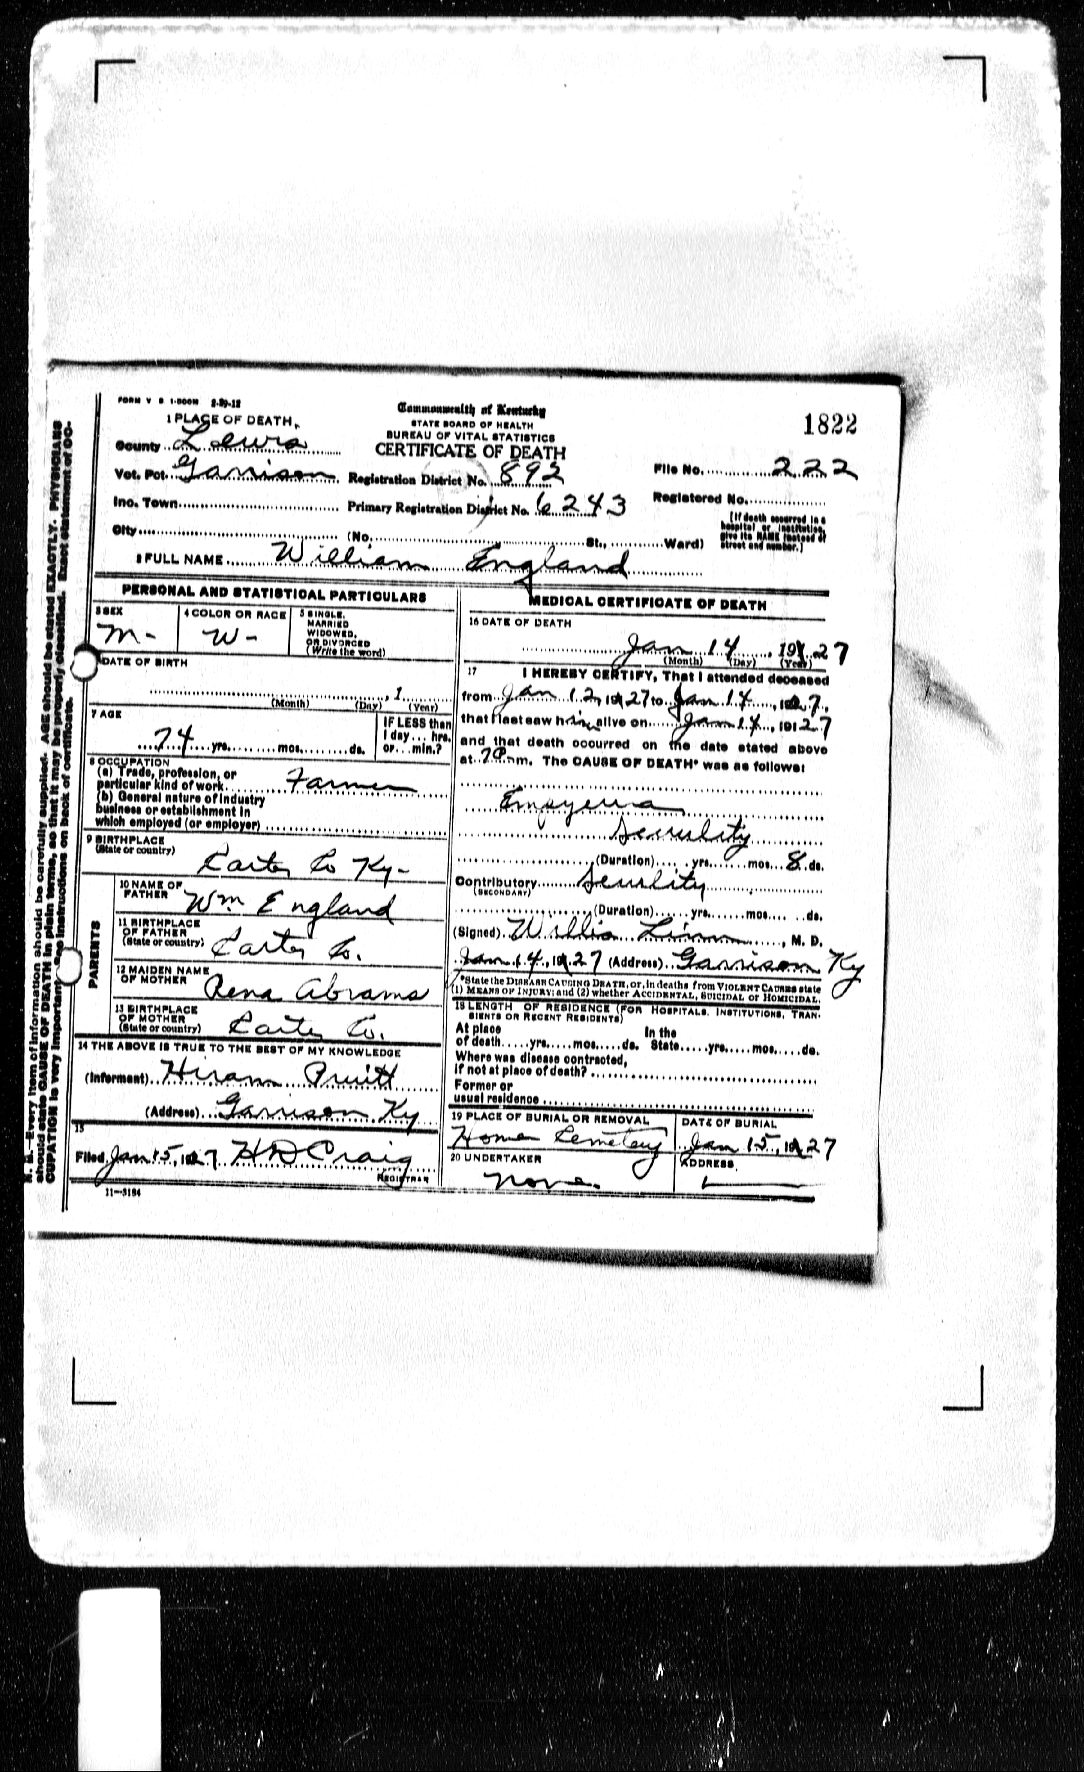 FORM V S 1-500M 2-29-12
1 PLACE OF DEATH,
County Lewis
Vot. Pct. Garrison
Inc. Town
City (No. St., Ward)
Commonwealth of Kentucky
STATE BOARD OF HEALTH
BUREAU OF VITAL STATISTICS
CERTIFICATE OF DEATH
Registration District No. 892
Primary Registration District No. 6243
1822
File No. 222
Registered No.
[If death occurred in a
hospital or institution,
give its NAME instead of
street and number.]
2 FULL NAME William England
PERSONAL AND STATISTICAL PARTICULARS
3 SEX
M-
4 COLOR OR RACE
W-
5 SINGLE,
MARRIED
WIDOWED,
OR DIVORCED
(Write the word)
DATE OF BIRTH
, 1
(Month) (Day) (Year)
7 AGE
74 yrs. mos. ds.
IF LESS than
1 day ... hrs.
or ... min.?
8 OCCUPATION
(a) Trade, profession, or
particular kind of work Farmer
(b) General nature of industry
business or establishment in
which employed (or employer)
9 BIRTHPLACE
(State or country)
Carter Co Ky-
PARENTS
10 NAME OF
FATHER Wm England
11 BIRTHPLACE
OF FATHER
(State or country) Carter Co.
12 MAIDEN NAME
OF MOTHER Rena Abrams
13 BIRTHPLACE
OF MOTHER
(State or country) Carter Co.
14 THE ABOVE IS TRUE TO THE BEST OF MY KNOWLEDGE
(Informant) Hiram Pruitt
(Address) Garrison Ky
15
Filed Jan 15, 1927 H D Craig
REGISTRAR
11-3184
MEDICAL CERTIFICATE OF DEATH
16 DATE OF DEATH
Jan 14, 1927
(Month) (Day) (Year)
17 I HEREBY CERTIFY, That I attended deceased
from Jan 12, 1927 to Jan 14, 1927,
that I last saw him alive on Jan 14, 1927
and that death occurred on the date stated above
at 7 P m. The CAUSE OF DEATH* was as follows:
Empyema
Senility
(Duration) yrs. mos. 8 ds.
Contributory Senility
(SECONDARY)
(Duration) yrs. mos. ds.
(Signed) Willis Linn, M. D.
Jan 14, 1927 (Address) Garrison Ky
*State the DISEASE CAUSING DEATH, or, in deaths from VIOLENT CAUSES state
(1) MEANS OF INJURY; and (2) whether ACCIDENTAL, SUICIDAL or HOMICIDAL.
18 LENGTH OF RESIDENCE (FOR HOSPITALS, INSTITUTIONS, TRAN-
SIENTS OR RECENT RESIDENTS)
At place In the
of death yrs. mos. ds. State yrs. mos. ds.
Where was disease contracted,
if not at place of death?
Former or
usual residence
19 PLACE OF BURIAL OR REMOVAL
Home Cemetery
DATE OF BURIAL
Jan 15, 1927
20 UNDERTAKER
None.
ADDRESS
N. B.—Every item of information should be carefully supplied. AGE should be stated EXACTLY. PHYSICIANS
should state CAUSE OF DEATH in plain terms, so that it may be properly classified. Exact statement of OC-
CUPATION is very important. See instructions on back of certificate.